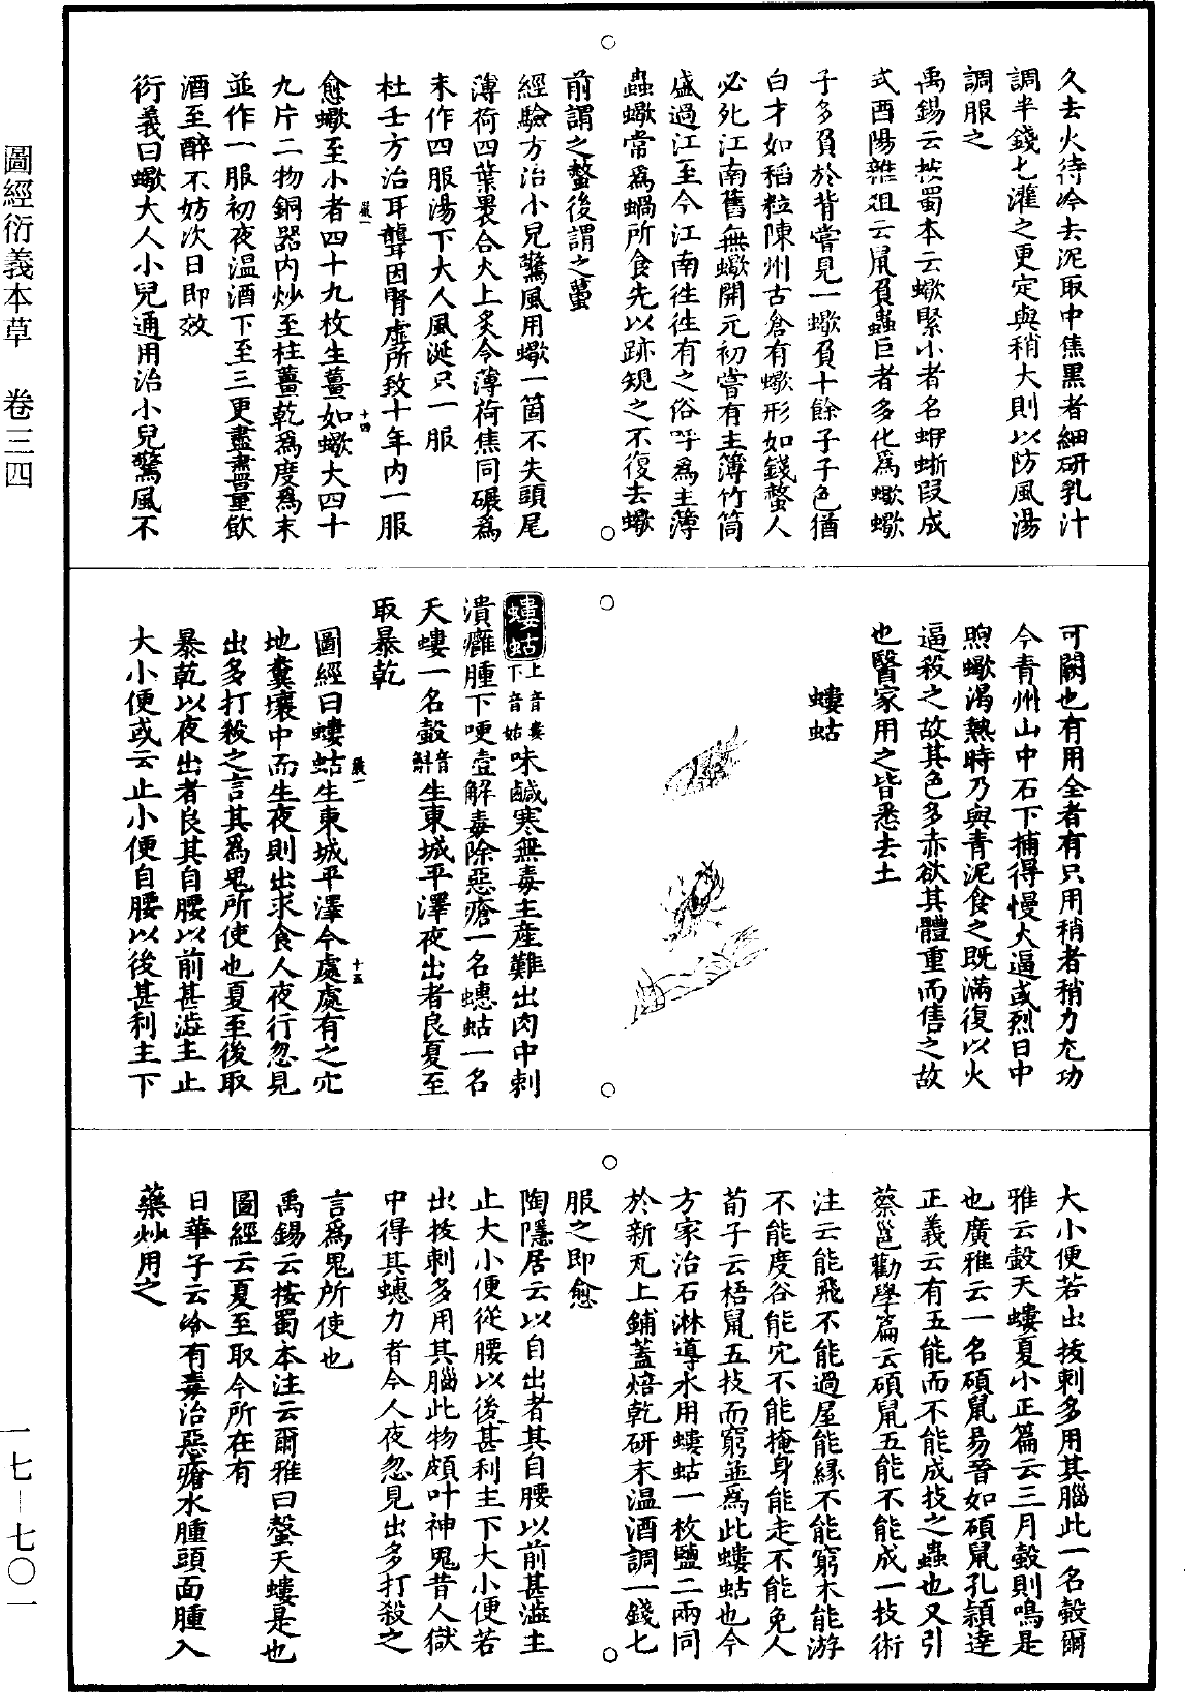 圖經衍義本草　卷三四
一七—七〇一
久去火待冷去泥取中焦黑者細研乳汁
調半錢匕灌之更定與稍大則以防風湯
調服之
禹錫云按蜀本云蠍緊小者名蚚蜥段成
式酉陽雜俎云鼠負蟲巨者多化爲蠍蠍
子多負於背嘗見一蠍負十餘子子色猶
白才如稻粒陳州古倉有蠍形如錢螫人
必死江南舊無蠍開元初嘗有主簿竹筒
盛過江至今江南往往有之俗呼爲主簿
蟲蠍常爲蝸所食先以跡規之不復去蠍
前謂之螫後謂之蠆
經驗方治小兒驚風用蠍一箇不失頭尾
薄荷四葉裹合火上炙令薄荷焦同碾爲
末作四服湯下大人風涎只一服
杜壬方治耳聾因腎虛所致十年内一服
愈蠍至小者四十九枚生薑如蠍大四十
九片二物銅器内炒至柱薑乾爲度爲末
並作一服初夜温酒下至三更盡盡量飲
酒至醉不妨次日即效
衍義曰蠍大人小兒通用治小兒驚風不
可闕也有用全者有只用稍者稍力尤功
今青州山中石下捕得慢火逼或烈日中
煦蠍渴熱時乃與青泥食之既滿復以火
逼殺之故其色多赤欲其體重而售之故
也醫家用之皆悉去土
螻蛄
螻蛄上音婁下音姑味鹹寒無毒主產難出肉中刺
潰癰腫下哽噎解毒除惡瘡一名蟪蛄一名
天螻一名螜音斛生東城平澤夜出者良夏至
取暴乾
圖經曰螻蛄生東城平澤今處處有之穴
地糞壤中而生夜則出求食人夜行忽見
出多打殺之言其爲鬼所使也夏至後取
暴乾以夜出者良其自腰以前甚澁主止
大小便或云止小便自腰以後甚利主下
大小便若出拔刺多用其腦此一名螜爾
雅云螜天螻夏小正篇云三月螜則鳴是
也廣雅云一名碩鼠易晉如碩鼠孔穎達
正義云有五能而不能成技之蟲也又引
蔡邕勸學篇云碩鼠五能不能成一技術
注云能飛不能過屋能緣不能窮木能游
不能度谷能穴不能掩身能走不能免人
荀子云梧鼠五技而窮並爲此螻蛄也今
方家治石淋導水用螻蛄一枚鹽二兩同
於新瓦上鋪蓋焙乾研末温酒調一錢匕
服之即愈
陶隱居云以自出者其自腰以前甚澁主
止大小便從腰以後甚利主下大小便若
出拔刺多用其腦此物頗叶神鬼昔人獄
中得其蟪力者今人夜忽見出多打殺之
言爲鬼所使也
禹錫云按蜀本注云爾雅曰螜天螻是也
圖經云夏至取今所在有
日華子云冷有毒治惡瘡水腫頭面腫入
藥炒用之